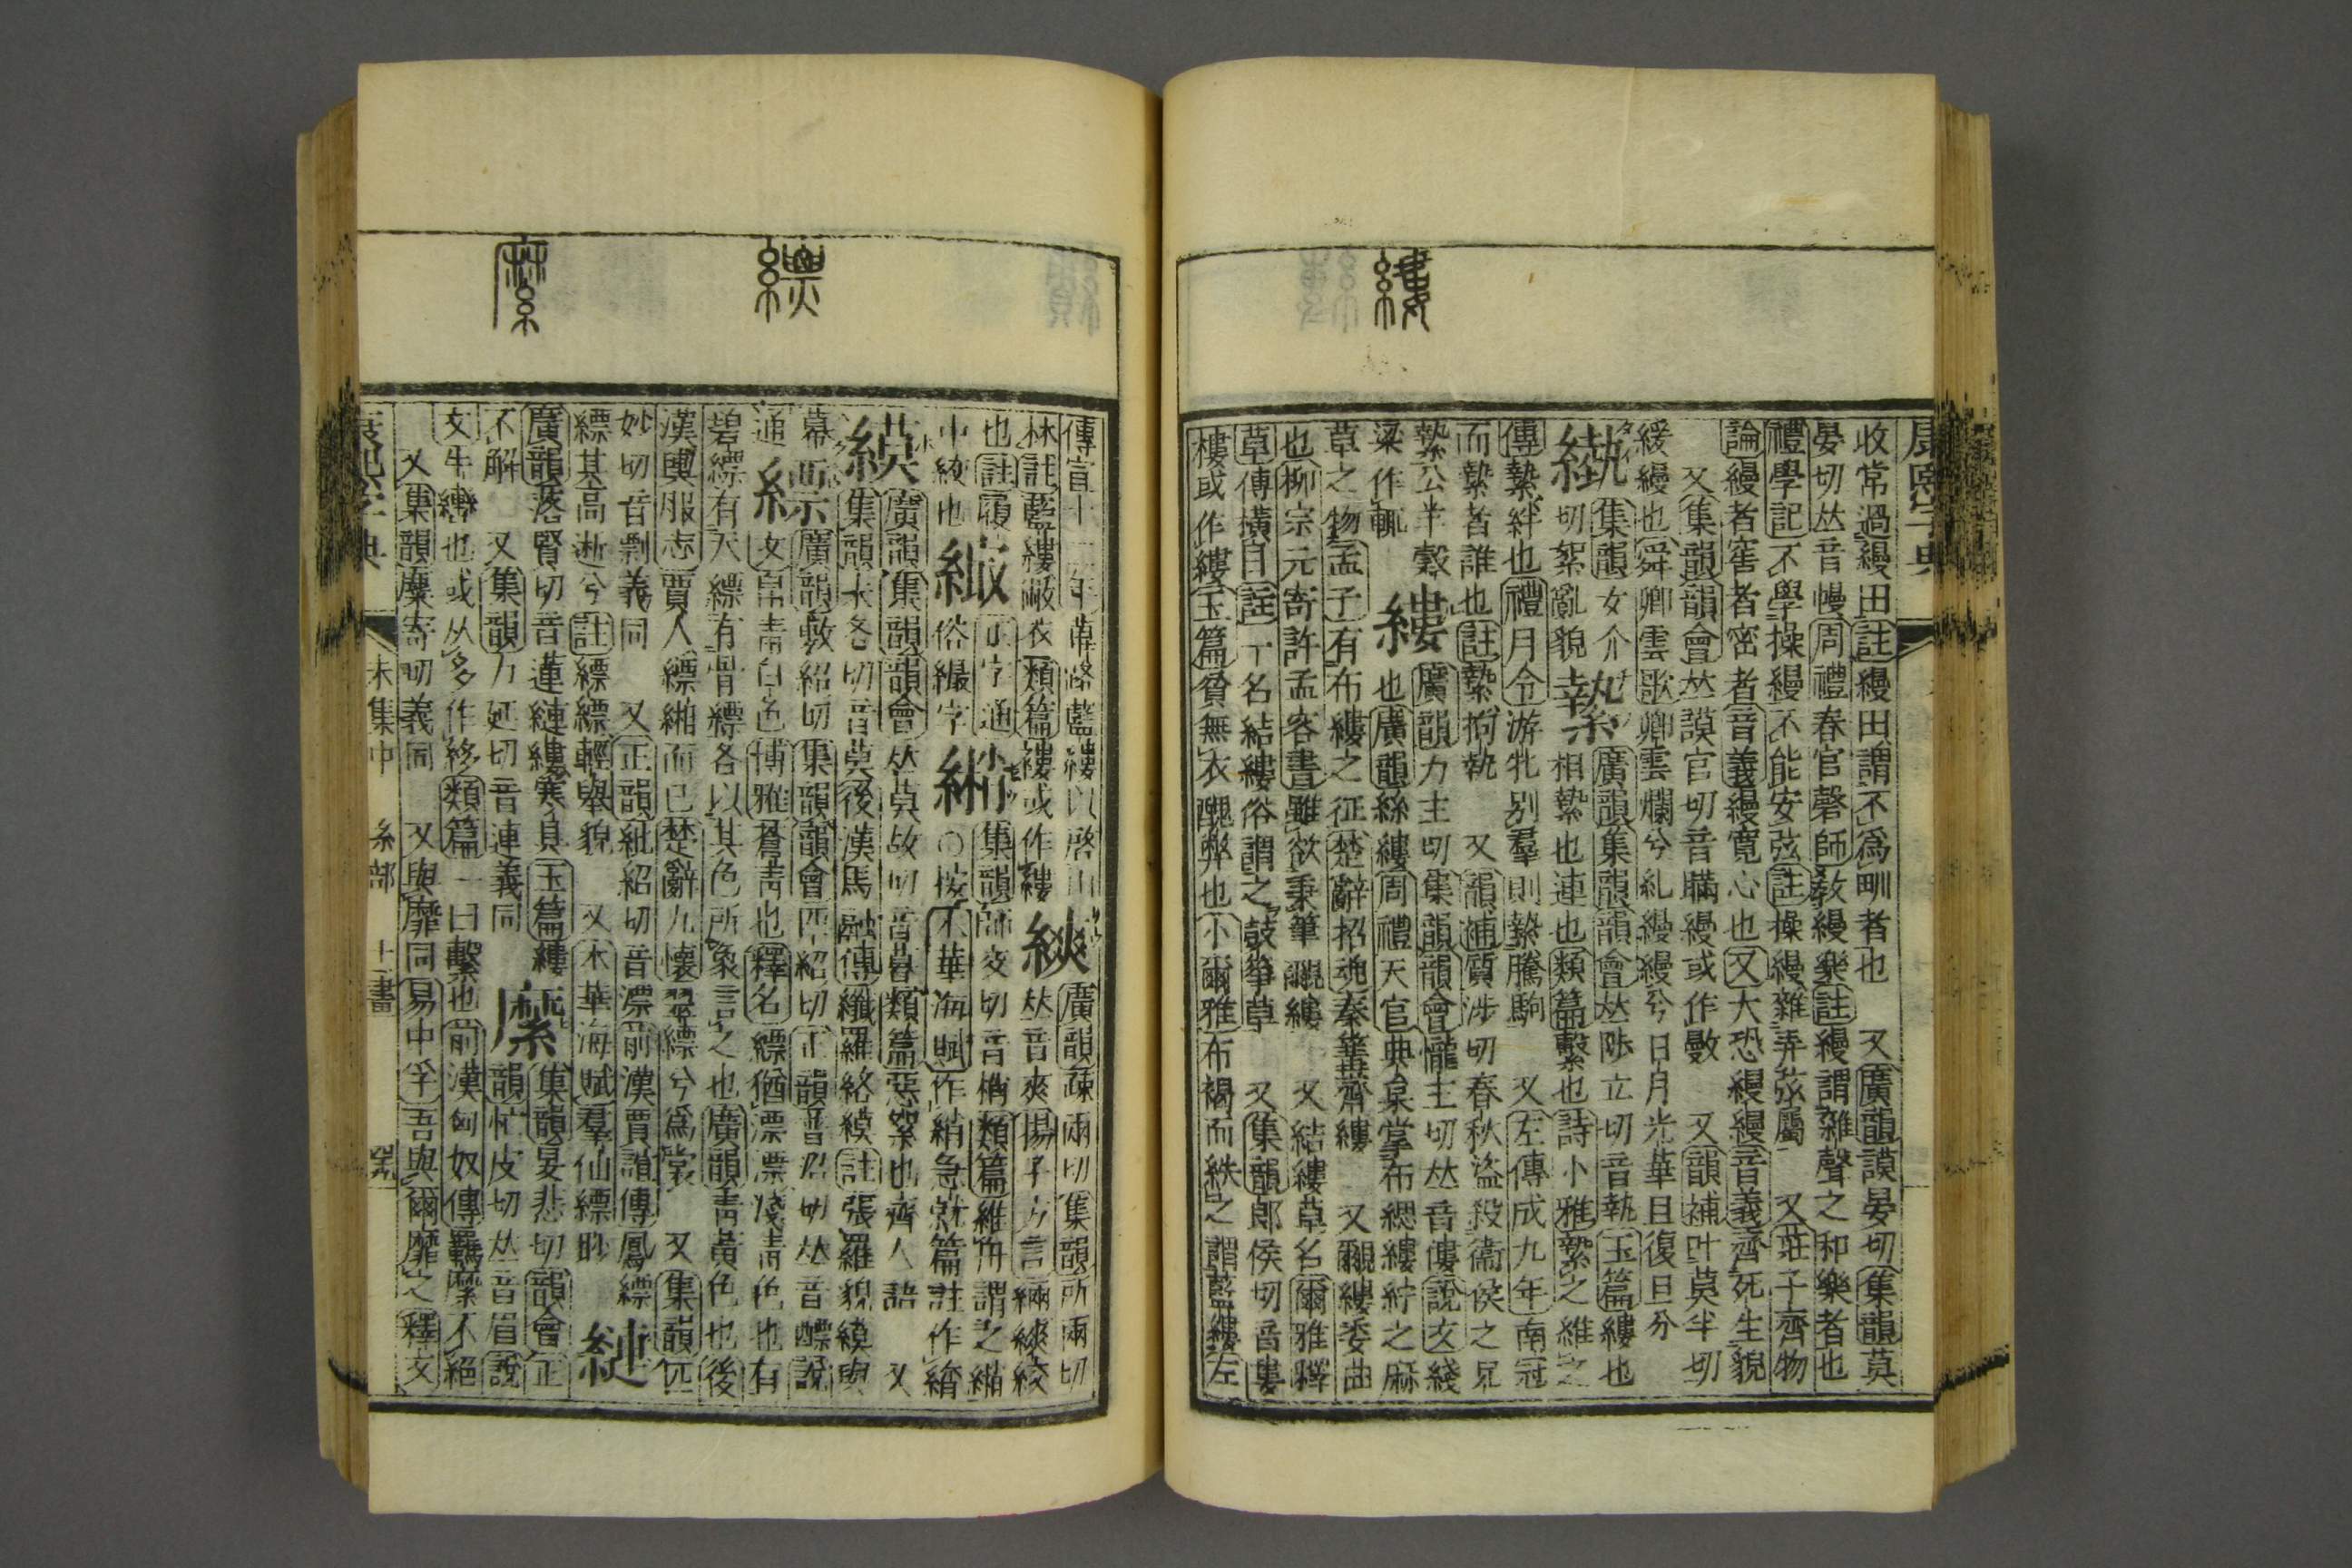 縷
康熙字典
收常過縵田註縵田謂不爲甽者也 又廣韻謨晏切集韻莫
晏切𠀤音慢周禮春官磬師敎縵樂註縵謂雜聲之和樂者也
禮學記不學操縵不能安弦註操縵雜弄弦屬 又莊子齊物
論縵者窖者密者音義縵寬心也又大恐縵縵音義齊死生貌
又集韻韻會𠀤謨官切音瞞縵或作㬅 又韻補叶莫半切
緩縵也舜卿雲歌卿雲爛兮糺縵縵兮日月光華旦復旦分
集韻女介切絮亂貌 縶 廣韻集韻韻會𠀤陟立切音執玉篇縷也
相縶也連也類篇繫也詩小雅縶之維之
傳縶絆也禮月令游牝别羣則縶騰駒 又左傳成九年南冠
而縶者誰也註縶拘執 又韻補質涉切春秋盜殺衞侯之兄
縶公羊穀梁作輒 縷 廣韻力主切集韻韻會𢤱主切𠀤音僂說文綫
也廣韻絲縷周禮天官典枲掌布緦縷紵之麻
草之物孟子有布縷之征楚辭招魂秦篝齊縷 又覼縷委曲
也柳宗元寄許孟容書雖欲秉筆覼縷 又結縷草名爾雅釋
草傳橫目註一名結縷俗謂之鼓箏草 又集韻郎侯切音婁
樓或作縷玉篇貧無衣醜弊也小爾雅布褐而紩之謂藍縷左
縹
縻
傳宣十二年蓽路藍縷以啓山林註藍縷敝衣類篇褸或作縷
縔 廣韻疎兩切集韻所兩切𠀤音爽揚子方言緉縔絞
也註履中絞也 緅 俗繓字
集韻師交切音梢類篇維舟謂之
〇按木華海賦作綃急就篇註作
縸 廣韻集韻韻會𠀤莫故切音暮類篇惡絮也齊人語 又
集韻末各切音莫後漢馬融傳纖羅絡縸註張羅貌縸與
幕通 縹 廣韻敷紹切集韻韻會匹紹切正韻普沼切𠀤音醥說
文帛靑白色博雅蒼靑也釋名縹猶漂漂淺靑色也有
碧縹有天縹有骨縹各以其色所象言之也廣韻靑黃色也後
漢輿服志賈人縹緗而已楚辭九懷翠縹兮爲裳 又集韻匹
妙切音剽義同 又正韻紕紹切音漂前漢賈誼傳鳳縹
縹其高逝兮註縹縹輕舉貌 又木華海賦羣仙縹眇 縺
廣韻落賢切音蓮縺縷寒具玉篇縷
不解 又集韻力延切音連義同 縻 集韻旻悲切韻會正
韻忙皮切𠀤音眉說
文牛轡也或从多作𦃖類篇一曰繫也前漢匈奴傳羈縻不絕
又集韻糜寄切義同 又與靡同易中孚吾與爾靡之釋文
康熙字典 未集中 糸部 十一畫